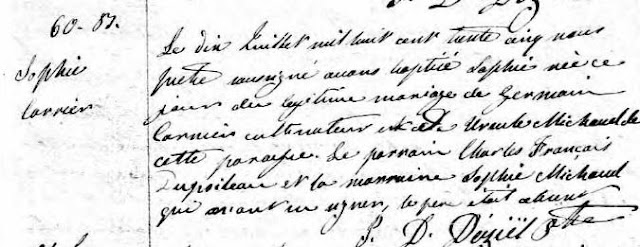 60-87.
Sophie
Carrier
Le dix Juillet mil huit cent trente cinq nous
prêtre soussigné avons baptisé Sophie née ce
jour du légitime mariage de Germain
Carrier cultivateur et de Ursule Michaud de
cette paroisse. Le parrain Charles François
et la marraine Sophie Michaud
qui n'ont su signer, le père était absent